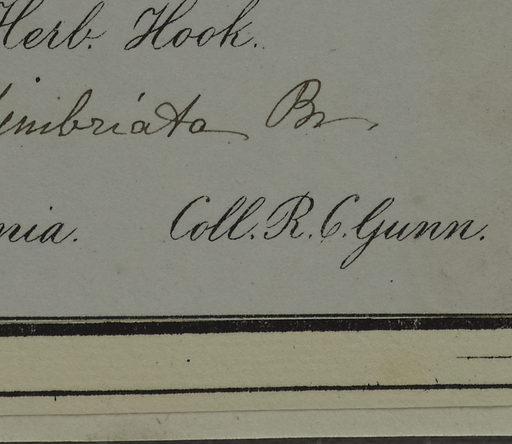 Herb. Hook.
imbriata Br.
nia. Coll. R. C. Gunn.